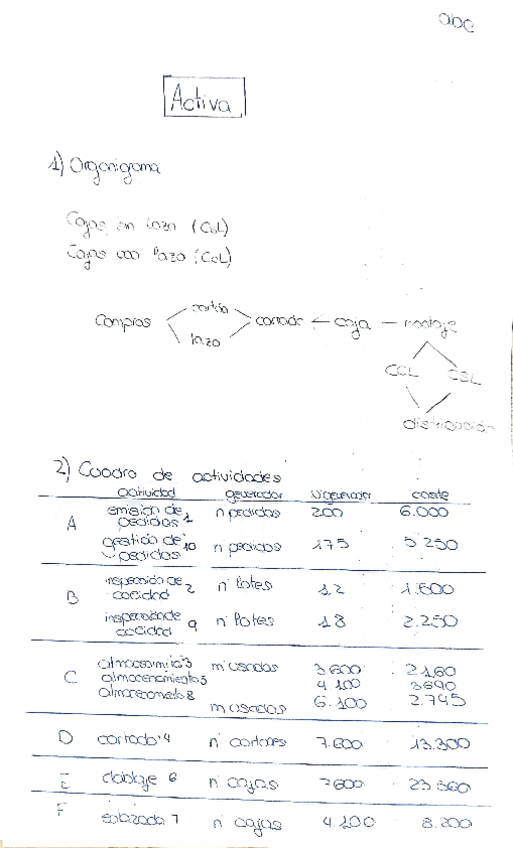 abc
Activa
1) Organigrama
Cajas sin lazo (CsL)
Cajas con lazo (CcL)
Compras cartón lazo cortado caja montaje
CCL CSL
distribución
2) Cuadro de actividades
actividad generador Nºgenerador coste
A emisión de pedidos 1 nº pedidos 200 6.000
gestión de pedidos 10 nº pedidos 175 5 250
B inspección de calidad 2 nº lotes 12 1.600
inspección de calidad 9 nº lotes 18 2.250
C almacenamiento 3 m usados 3 600 2 160
almacenamiento 5 4 100 3690
almacenamiento 8 m usados 6.100 2.745
D cortado 4 nº cartones 7.600 13.300
E doblaje 6 nº cajas 7600 23 360
F enlazado 7 nº cajas 4 100 8.200